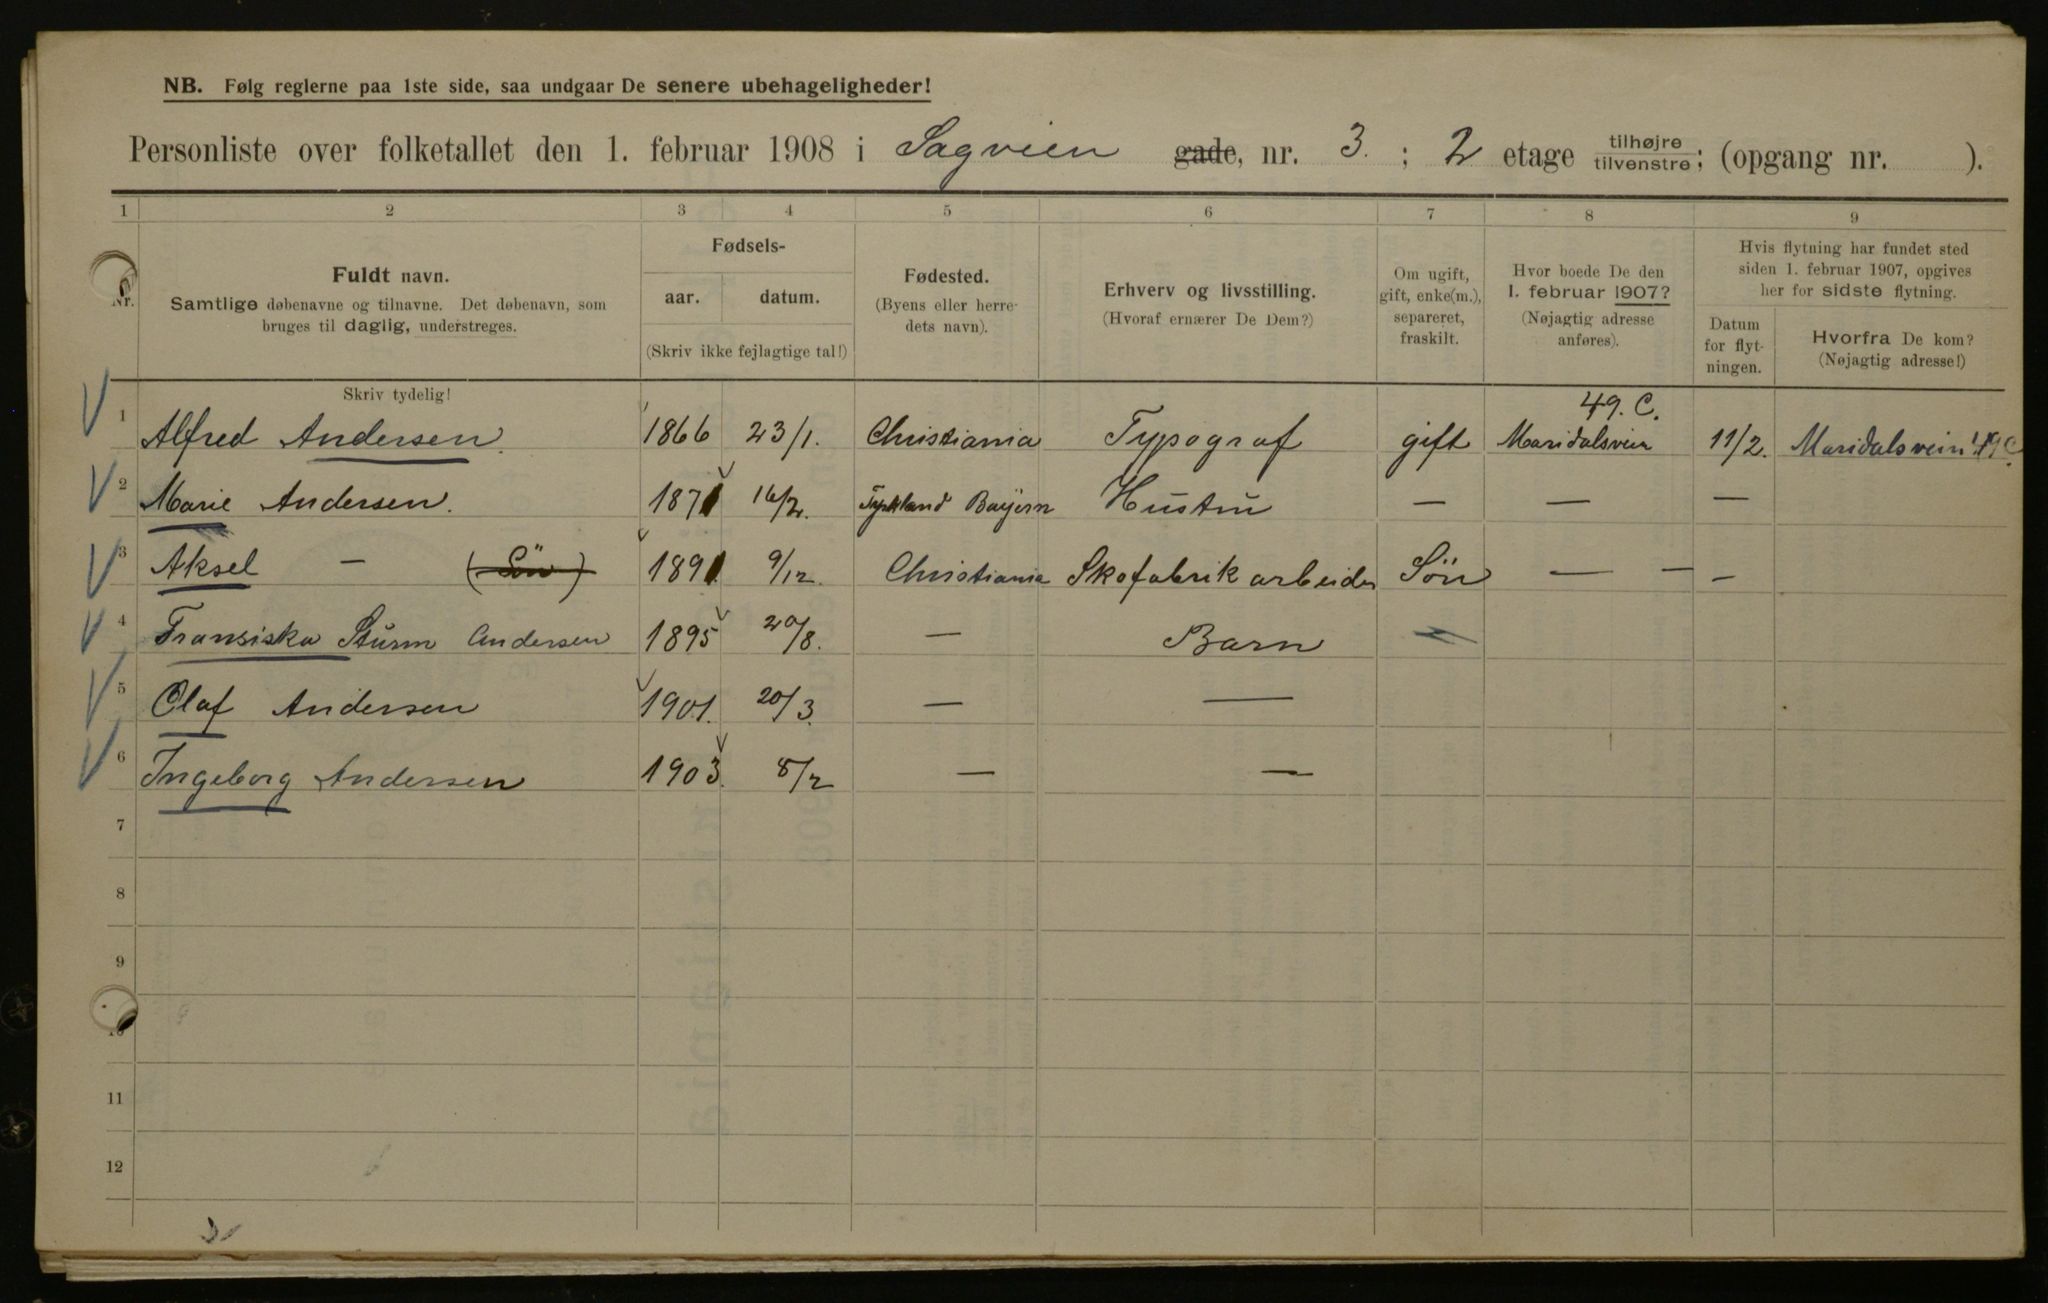 NB. Følg reglerne paa 1ste side, saa undgaar De senere ubehageligheder!
Personliste over folketallet den 1. februar 1908 i Sagveien gade, nr. 3. ; 2 etage tilhøjre tilvenstre; (opgang nr. ).
1 2 3 4 5 6 7 8 9
Nr.
Fuldt navn.
Samtlige døbenavne og tilnavne. Det døbenavn, som
bruges til daglig, understreges.
Fødsels-
aar. datum.
(Skriv ikke fejlagtige tal!)
Fødested.
(Byens eller herre-
dets navn).
Erhverv og livsstilling.
(Hvoraf ernærer De Dem?)
Om ugift,
gift, enke(m.),
separeret,
fraskilt.
Hvor boede De den
1. februar 1907?
(Nøjagtig adresse
anføres).
Hvis flytning har fundet sted
siden 1. februar 1907, opgives
her for sidste flytning.
Datum
for flyt-
ningen.
Hvorfra De kom?
(Nøjagtig adresse!)
Skriv tydelig!
49. C.
1 Alfred Andersen. 1866 23/1. Christiania Typograf gift Maridalsvein 11/2. Maridalsvein 49 C.
2 Marie Andersen. 1871 16/2. Tyskland Bayern Hustru — — —
3 Aksel — (Søn) 1891 9/12. Christiania Skofabrik arbeider Sön — — —
4 Fransiska Sturm Andersen 1895 20/8. — Barn —
5 Olaf Andersen 1901. 20/3. — —
6 Ingeborg Andersen 1903. 8/2 — —
7
8
9
10
11
12